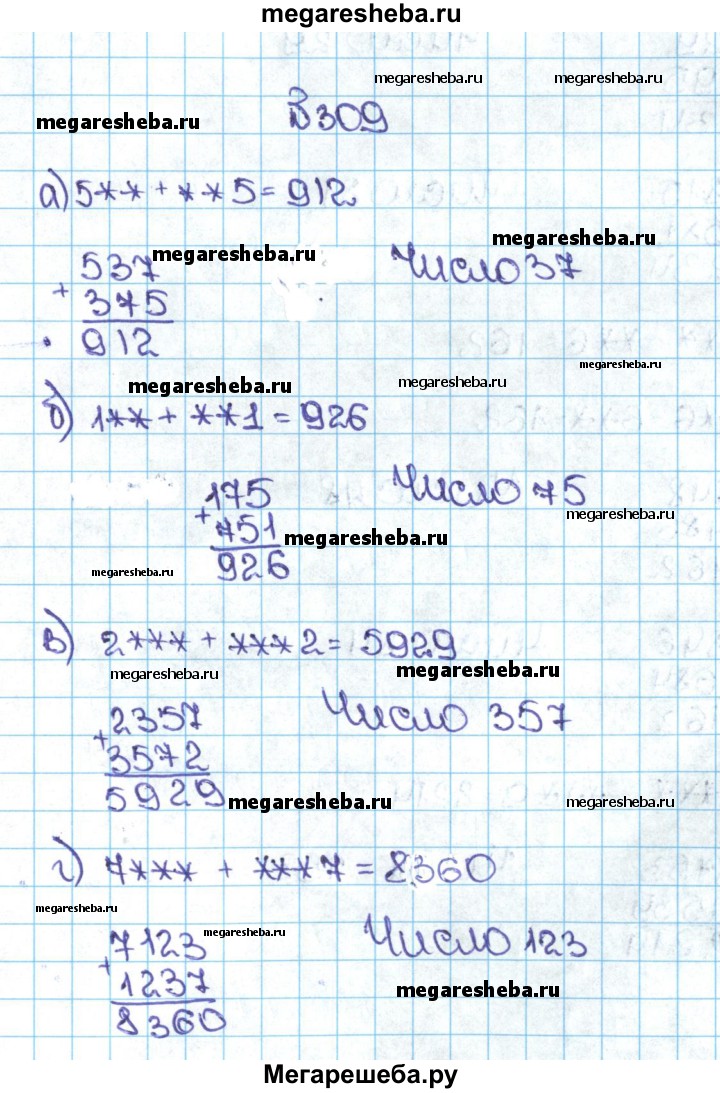 megaresheba.ru
megaresheba.ru megaresheba.ru
megaresheba.ru
309
а) 5** + **5 = 912
megaresheba.ru
megaresheba.ru
537 Число 37
+
375
912
megaresheba.ru
megaresheba.ru megaresheba.ru
б) 1** + **1 = 926
175 Число 75
+
751
megaresheba.ru
megaresheba.ru
926
megaresheba.ru
в) 2*** + ***2 = 5929
megaresheba.ru megaresheba.ru
2357 Число 357
+
3572
5929
megaresheba.ru megaresheba.ru
г) 7*** + ***7 = 8360
megaresheba.ru
megaresheba.ru
7123 Число 123
+
1237
megaresheba.ru
8360
Мегарешеба.ру